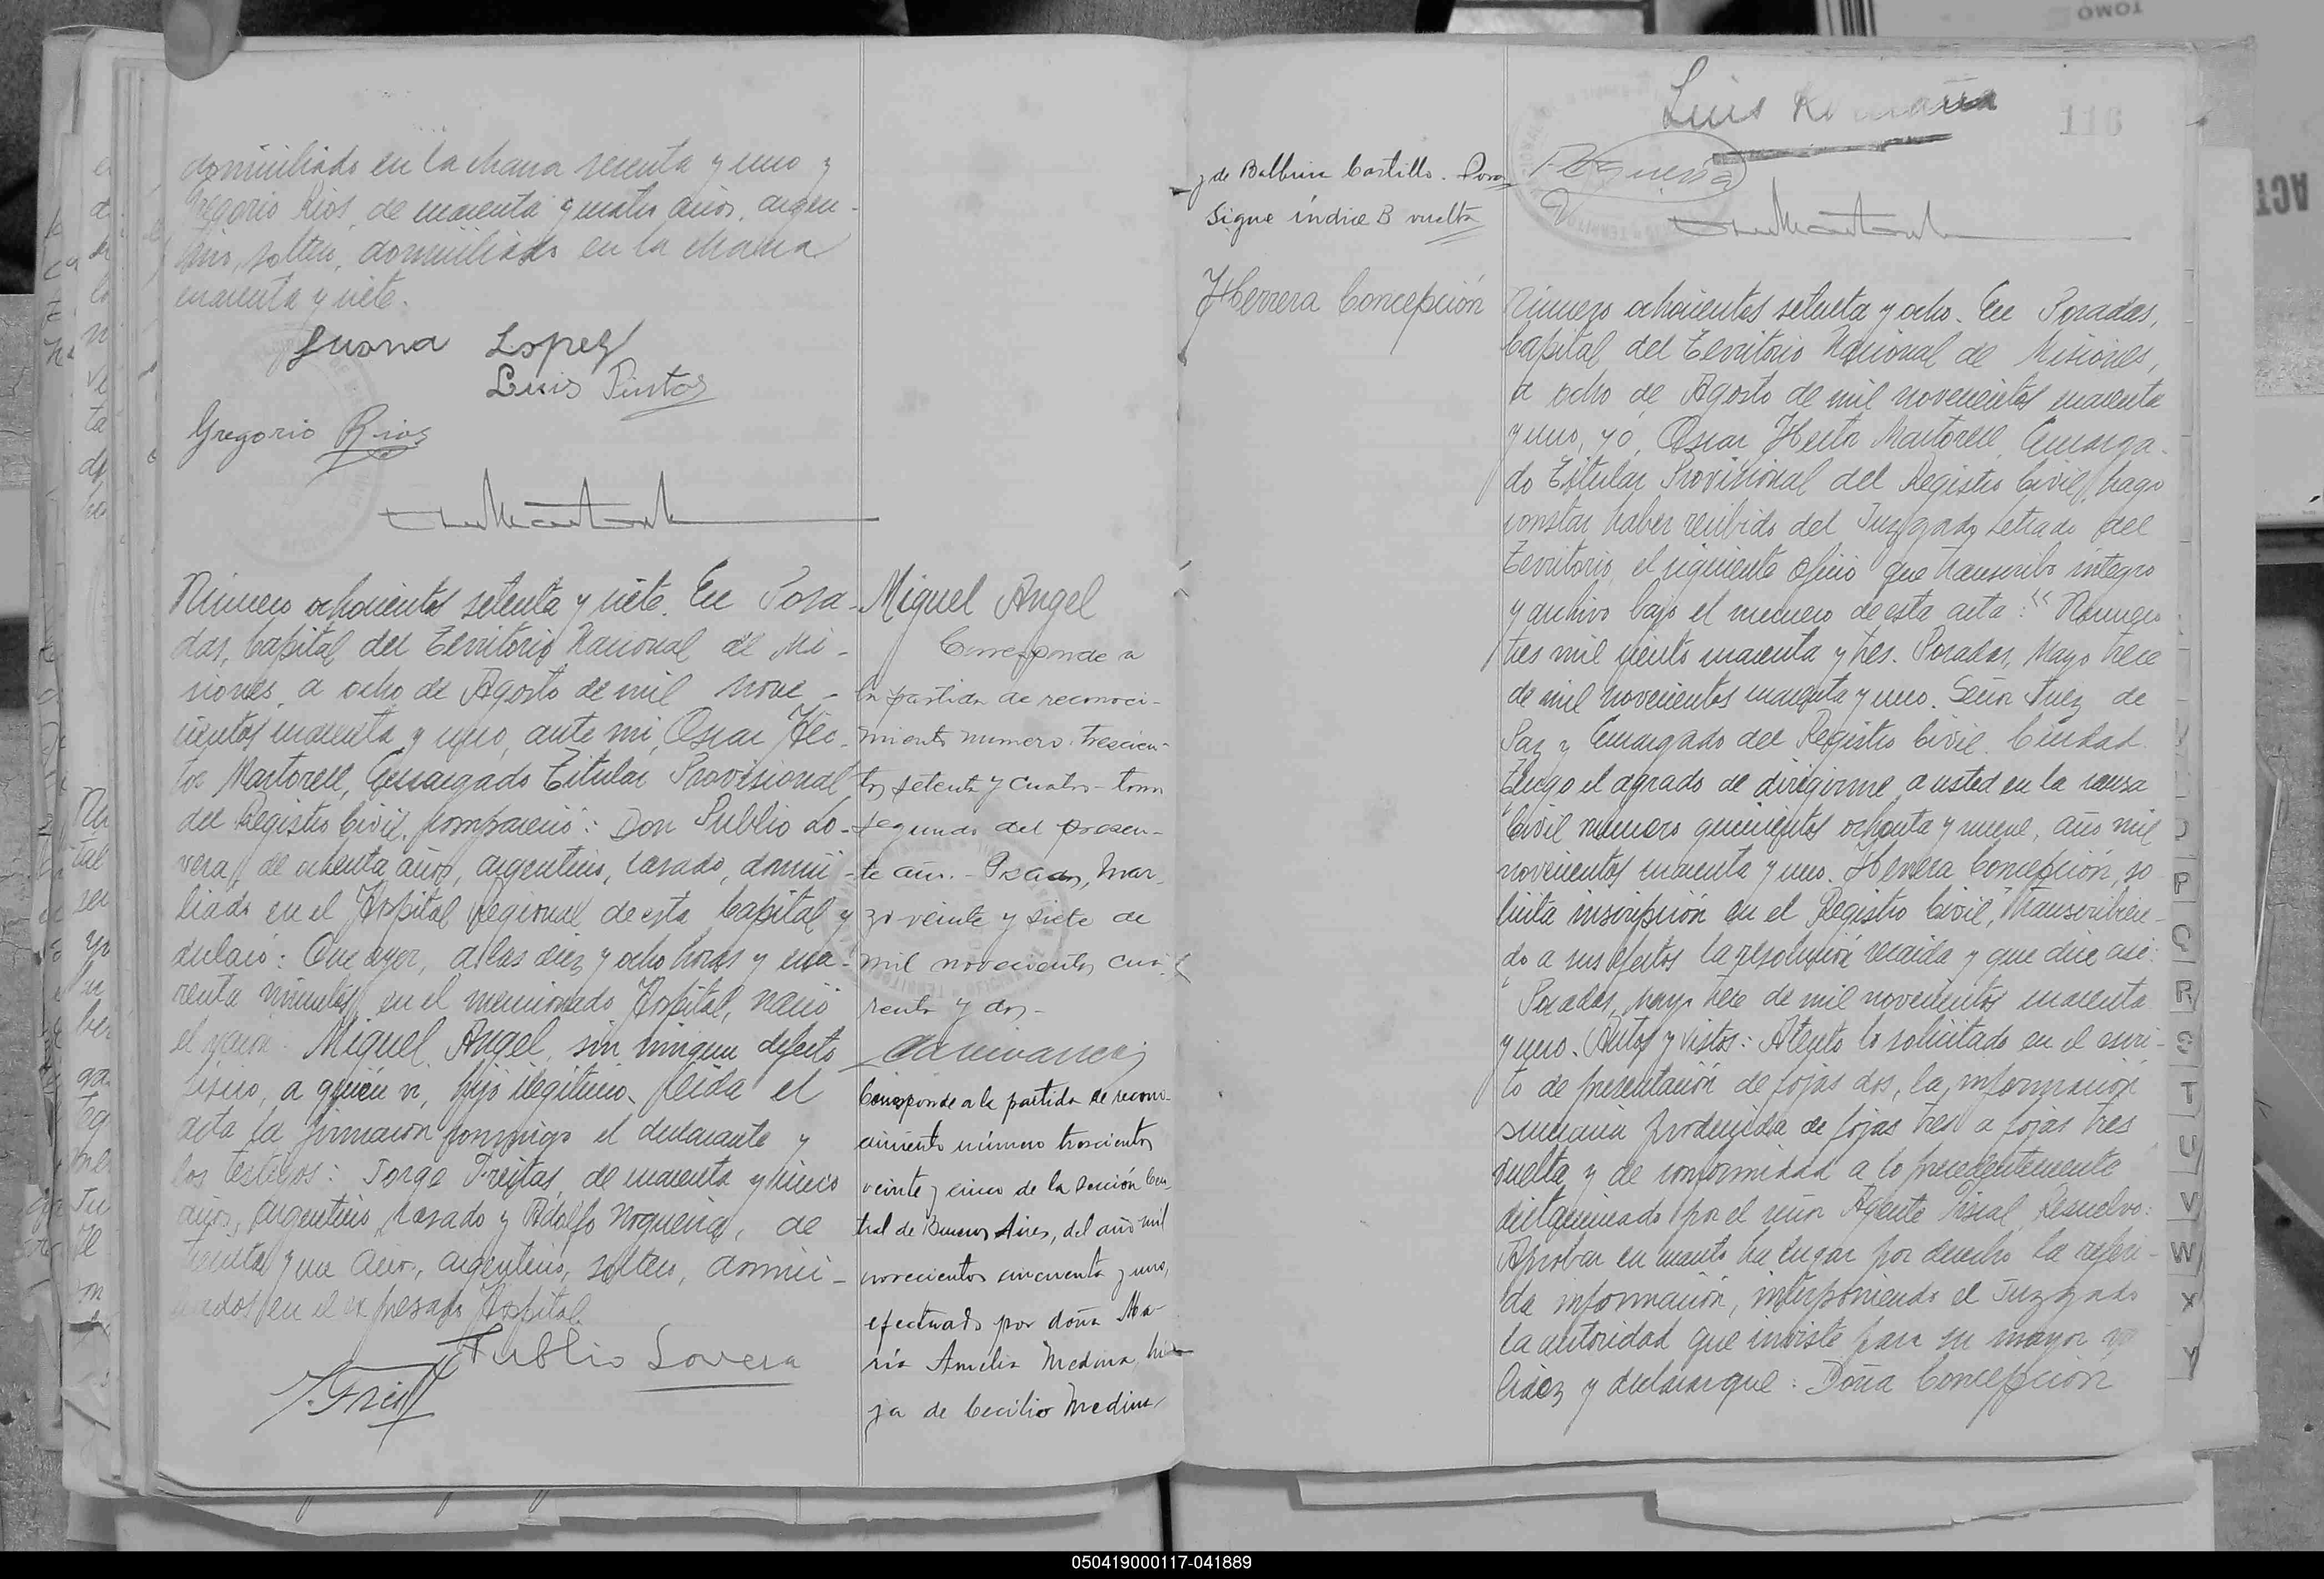 domiciliado en la chacra sesenta y uno y
Gregorio Rios, de cuarenta y cuatro años, argen-
tino, soltero, domiciliado en la chacra
cuarenta y siete.
Juana Lopez
Luis Pintos
Gregorio Rios
Número ochocientos setenta y siete. En Posa-
das, Capital del Territorio Nacional de Mi-
siones, a ocho de Agosto de mil nove-
cientos cuarenta y uno, ante mi, Oscar Héc-
tor Martorell, Encargado Titular Provisional
del Registro Civil, compareció: Don Publio Lo-
vera, de ochenta años, argentino, casado, domici-
liado en el Hospital Regional de esta Capital y
declaró: Que ayer, a las diez y ocho horas y cua-
renta minutos, en el mencionado Hospital, nació
el varón Miguel Angel, sin ningun defecto
físico, a quién vi, hijo ilegítimo. Leida el
acta la firmaron conmigo el declarante y
los testigos: Jorge Freitas, de cuarenta y cinco
años, argentino, casado y Adolfo Nogueira, de
treinta y un años, argentino, soltero, domici-
liados en el expresado Hospital.
Publio Lovera
J. Freit
Miguel Angel
Corresponde a
la partida de reconoci-
miento numero trescien-
tos setenta y cuatro - tomo
segundo del presen-
te año. - Posadas, Mar-
zo veinte y siete de
mil novecientos cua-
renta y dos -
Corresponde a la partida de recono-
cimiento número trescientos
veinte y cinco de la Sección Cen-
tral de Buenos Aires, del año mil
novecientos cincuenta y uno,
efectuado por doña Ma-
ría Amelia Medina, hi-
ja de Cecilio Medina
y de Balbina Castillo. Posa
Sigue índice B vuelta
Luis
Nogueira
110
Herrera Concepción
Número ochocientos setenta y ocho. En Posadas,
Capital del Territorio Nacional de Misiones,
a ocho de Agosto de mil novecientos cuarenta
y uno, yó, Oscar Hector Martorell, Encarga-
do Titular Provisional del Registro Civil, hago
constar haber recibido del Juzgado Letrado del
Territorio, el siguiente oficio que transcribo integro
y archivo bajo el numero de esta acta: "Número
tres mil ciento cuarenta y tres. Posadas, Mayo trece
de mil novecientos cuarenta y uno. Señor Juez de
Paz y Encargado del Registro Civil. Ciudad.
Tengo el agrado de dirigirme a usted en la causa
Civil número quinientos ochenta y nueve, año mil
novecientos cuarenta y uno. Herrera Concepción, so
licita inscripción en el Registro Civil", transcribien-
do a sus efectos la resolución recaida y que dice así:
"Posadas, mayo trece de mil novecientos cuarenta
y uno. Autos y vistos: Atento lo solicitado en el escri-
to de presentación de fojas dos, la información
sumaria producida de fojas tres a fojas tres
vuelta y de conformidad a lo precedentemente
dictaminado por el señor Agente Fiscal, Resuelvo:
Aprobar en cuanto ha lugar por derecho la referi-
da información, interponiendo el Juzgado
la autoridad que inviste para su mayor va
lidez y declarar que: Doña Concepción
P
Q
R
S
T
U
V
W
X
Y
TOMO
ACT
050419000117-041889